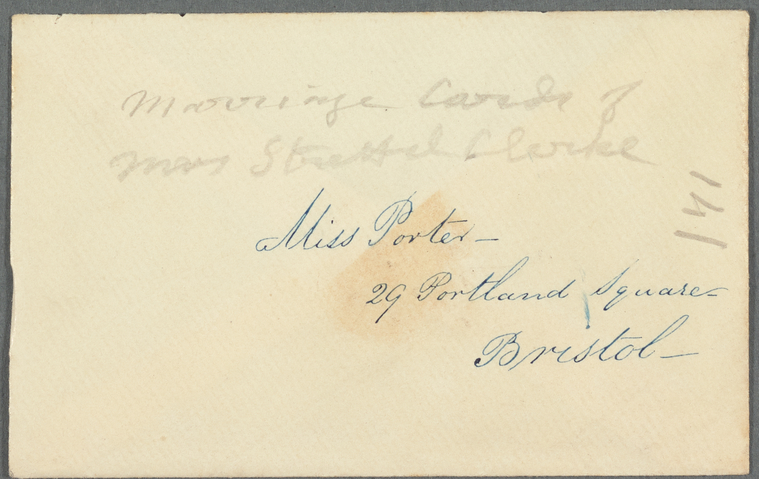 Marriage Cards of
Mrs Stretfel Clarke
Miss Porter—
29 Portland Square—
Bristol—
141